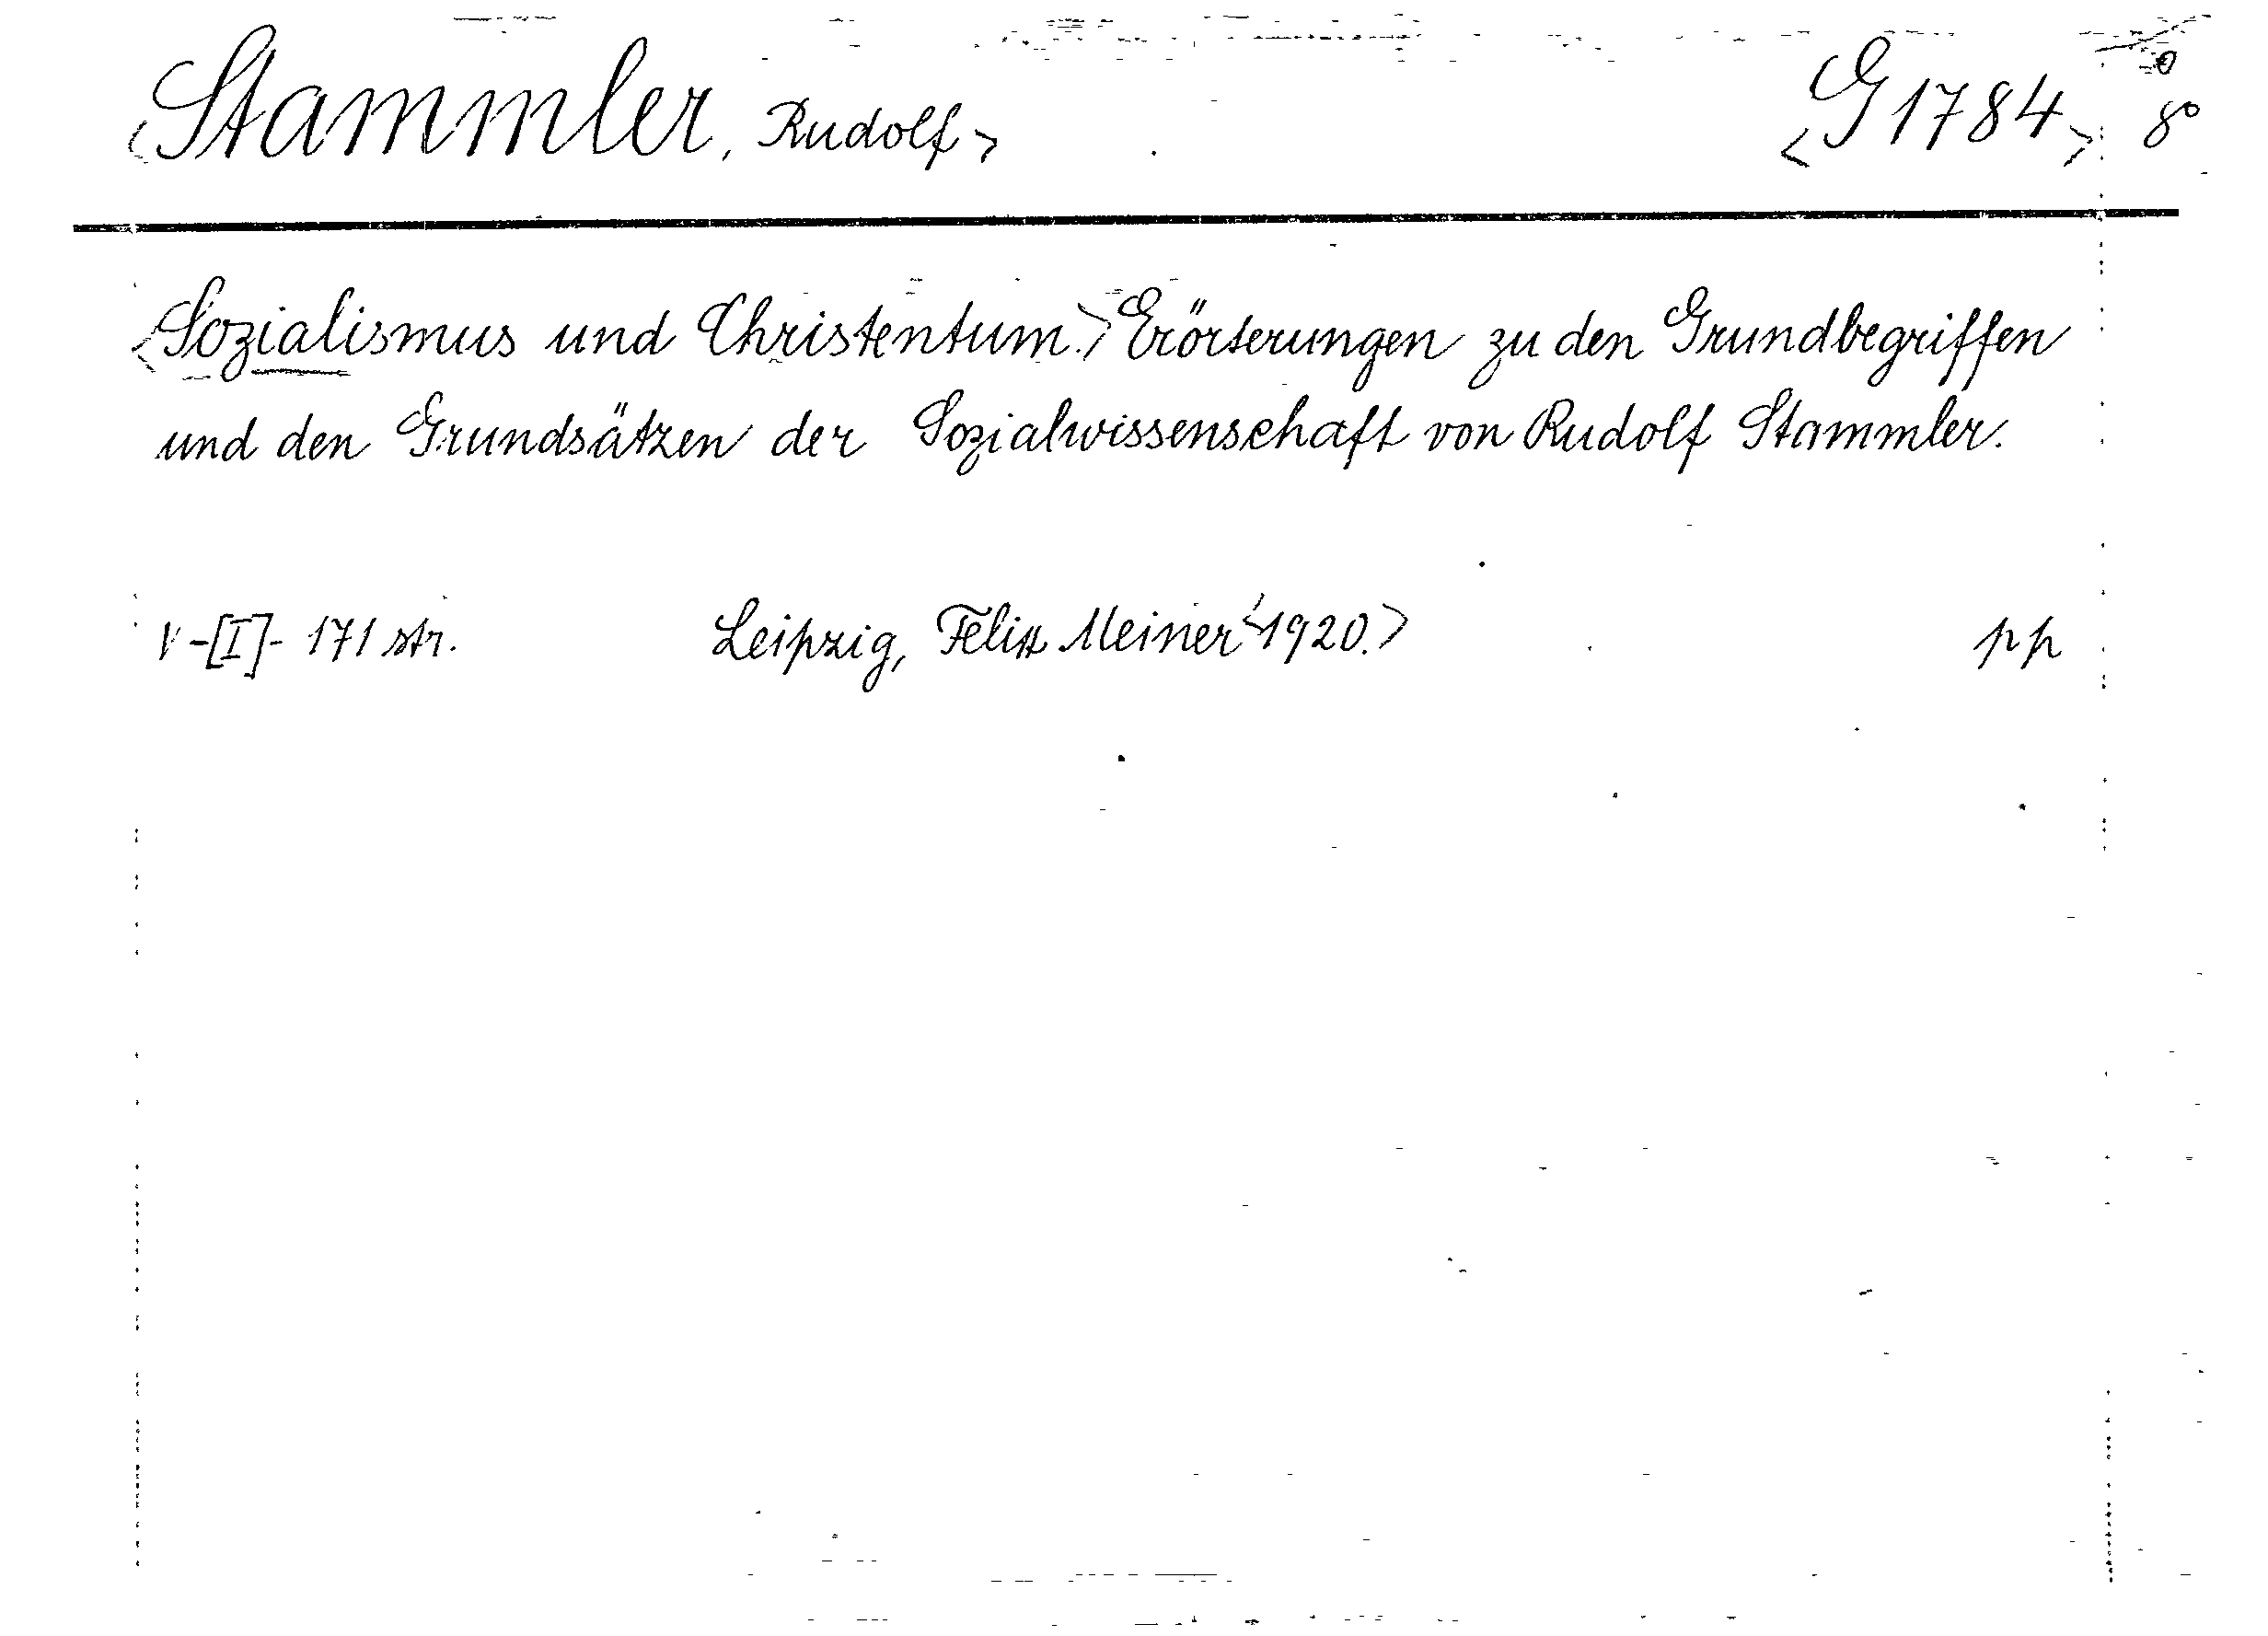 <Stammler, Rudolf> <G 1784> 8°
<Sozialismus und Christentum.> Erörterungen zu den Grundbegriffen
und den Grundsätzen der Sozialwissenschaft von Rudolf Stammler.
V-[I]- 171 str. Leipzig, Felix Meiner <1920.> pp